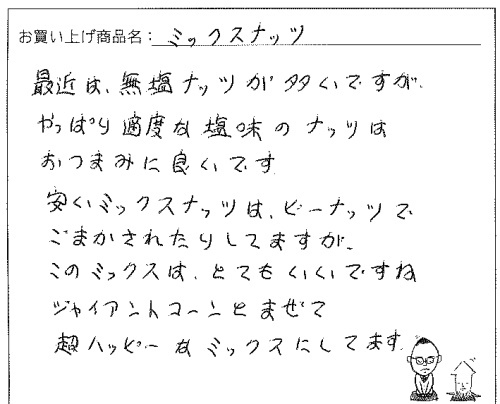 お買い上げ商品名：ミックスナッツ
最近は、無塩ナッツが多いですが、
やっぱり適度な塩味のナッツは
おつまみに良いです
安いミックスナッツは、ピーナッツで
ごまかされたりしてますが、
このミックスは、とてもいいですね
ジャイアントコーンとまぜて
超ハッピーなミックスにしてます